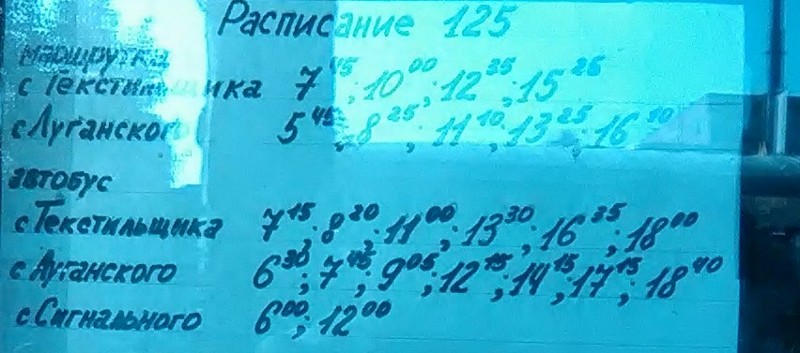 Расписание 125
маршрутка
с Текстильщика 7⁴⁵; 10⁰⁰; 12²⁵; 15²⁵
с Луганского 5⁴⁵; 8²⁵; 11¹⁰; 13²⁵; 16³⁰
автобус
с Текстильщика 7¹⁵; 8²⁰; 11⁰⁰; 13³⁰; 16³⁵; 18⁰⁰
с Луганского 6³⁰; 7⁴⁵; 9⁰⁵; 12¹⁵; 14¹⁵; 17¹⁵; 18⁴⁰
с Сигнального 6⁰⁰; 12⁰⁰